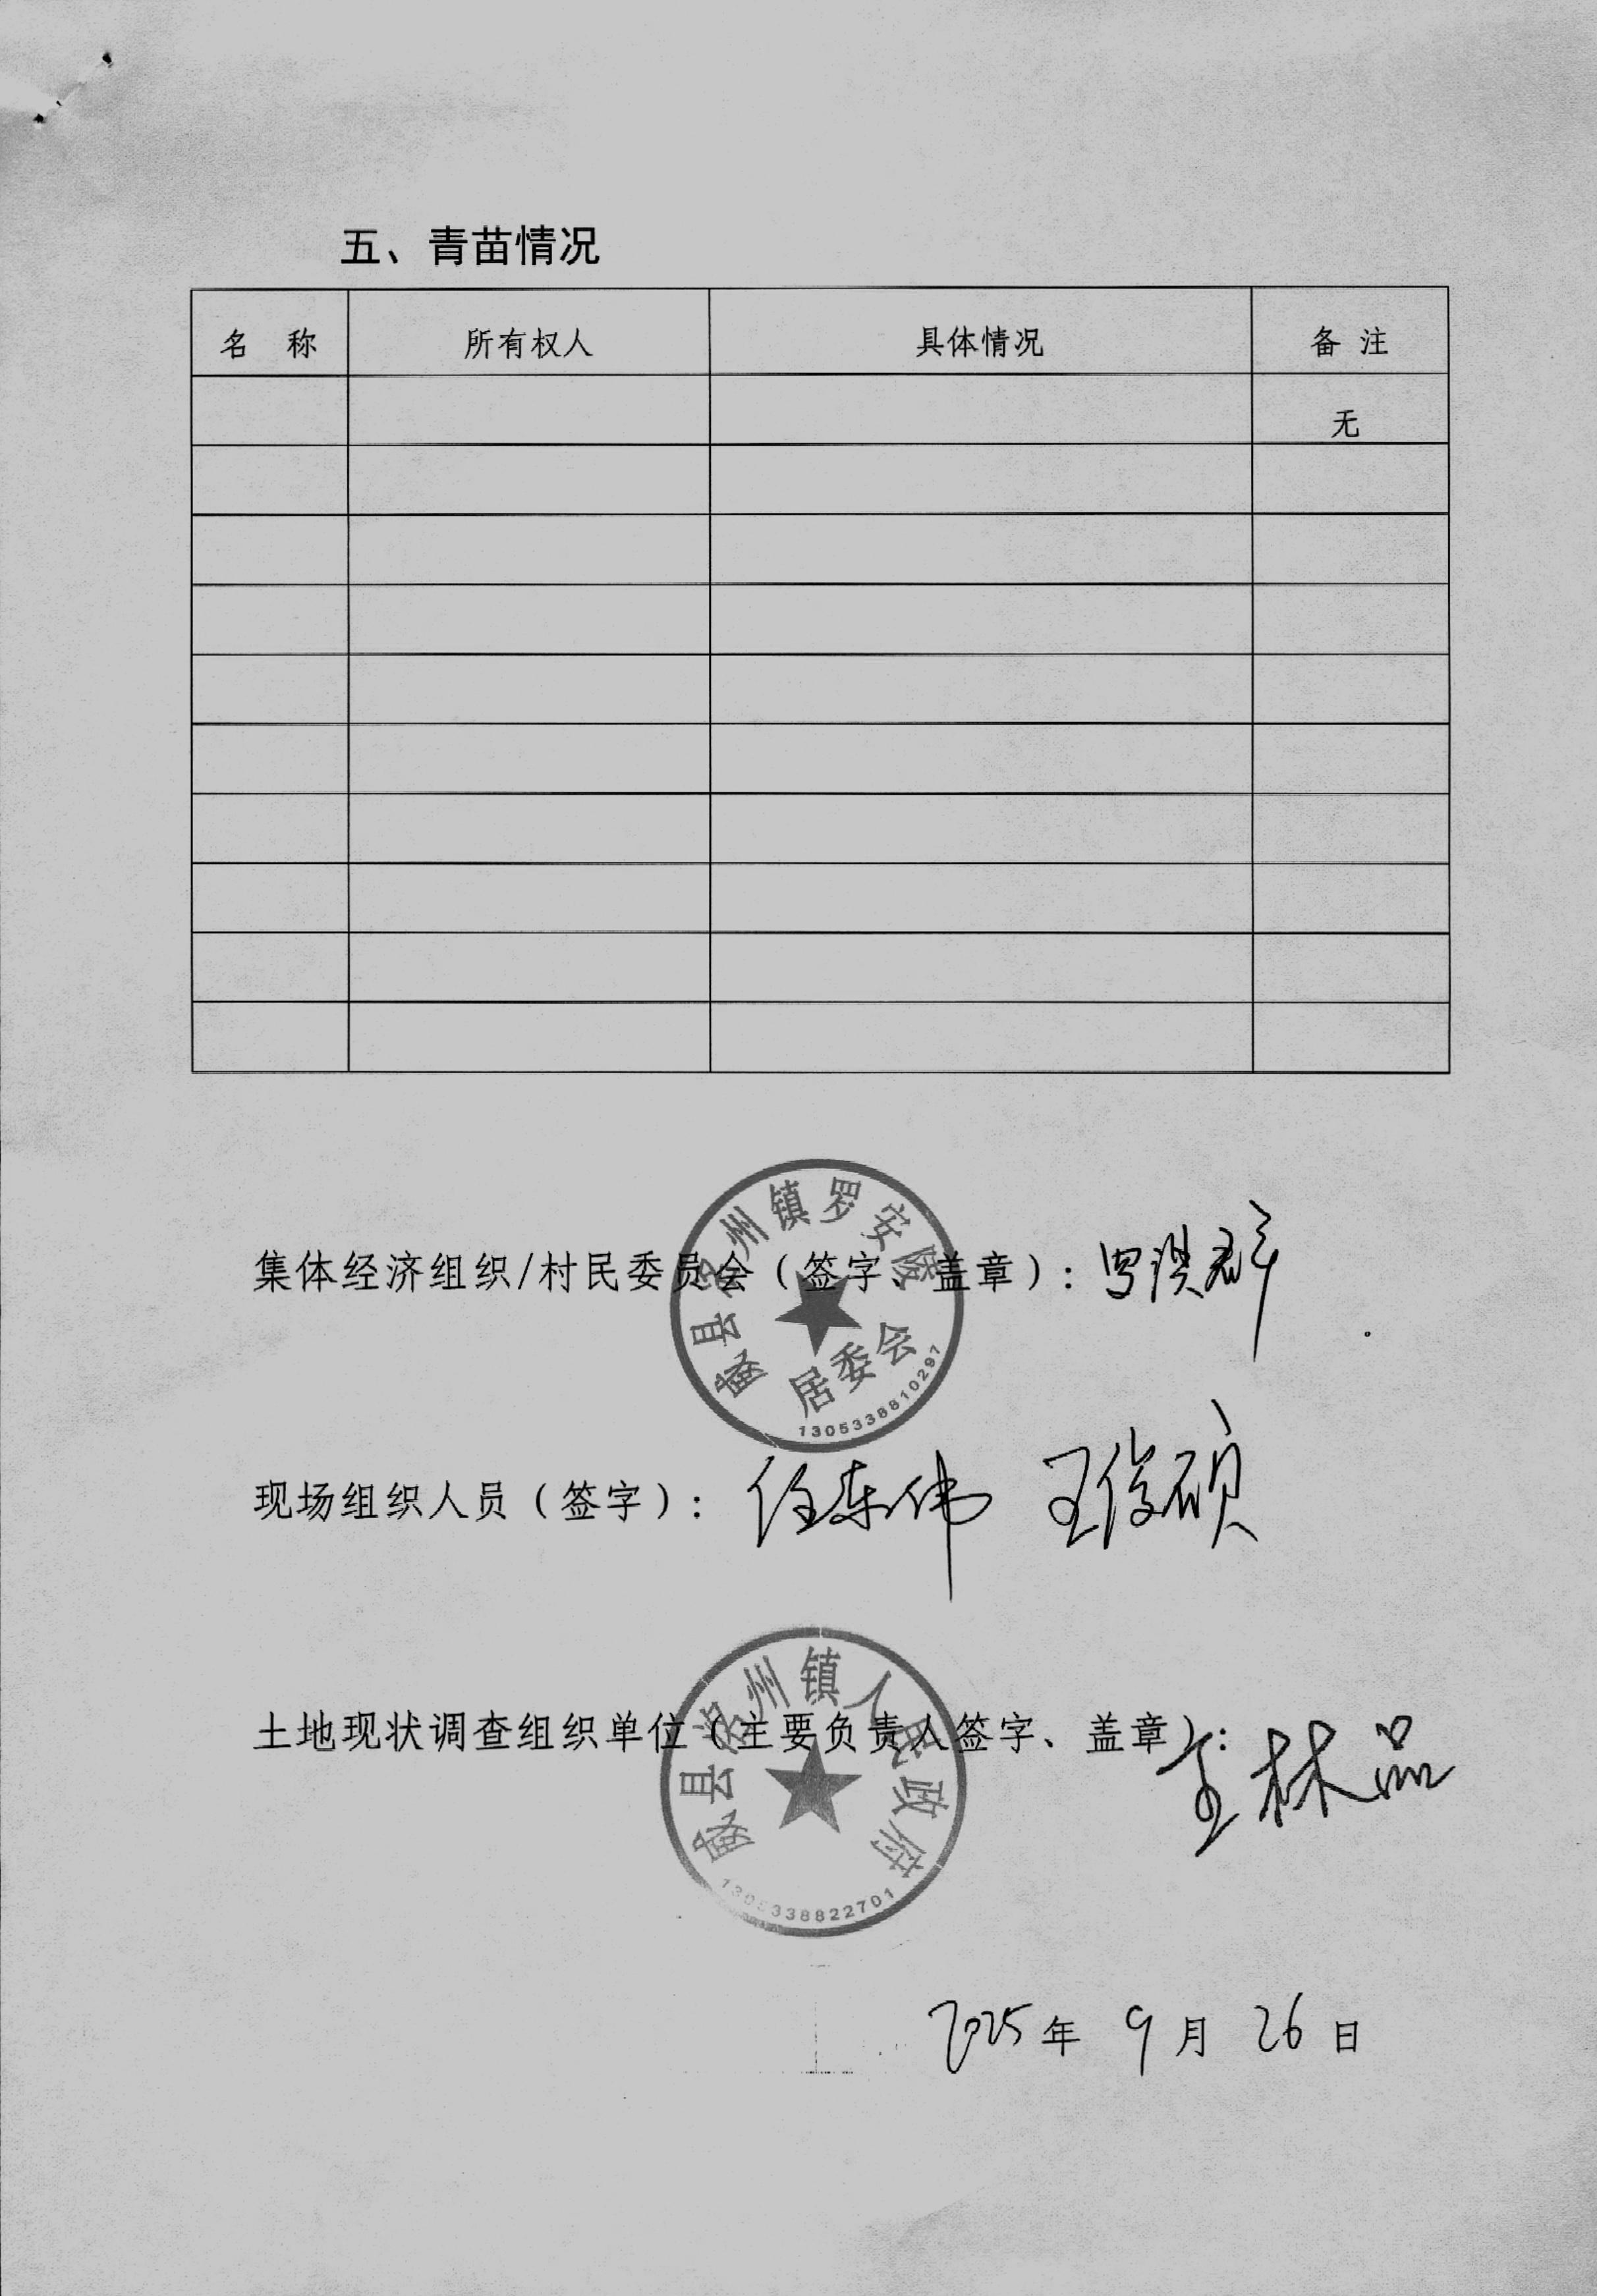 五、青苗情况
名 称 所有权人 具体情况 备 注
无
威县洺州镇罗安陵
居委会
1305338810297
集体经济组织/村民委员会（签字、盖章）：
现场组织人员（签字）：任东伟 王俊硕
威县洺州镇人民政府
1305338822701
土地现状调查组织单位（主要负责人签字、盖章）：
2025年 9月 26日